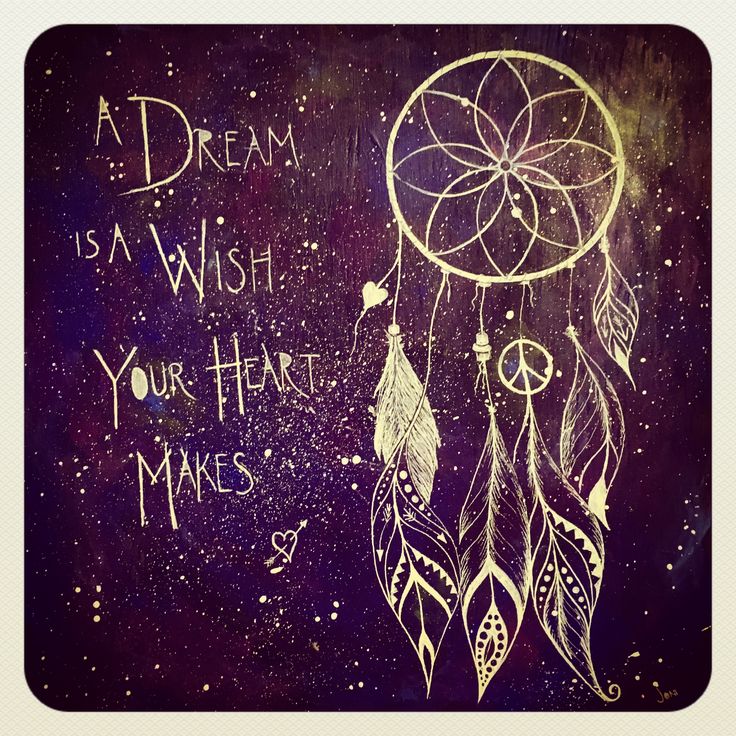 A DREAM
IS A WISH
YOUR HEART
MAKES